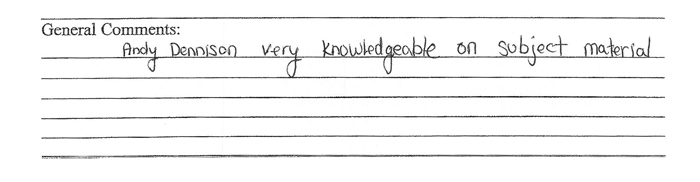 General Comments:
Andy Dennison very knowledgeable on subject material